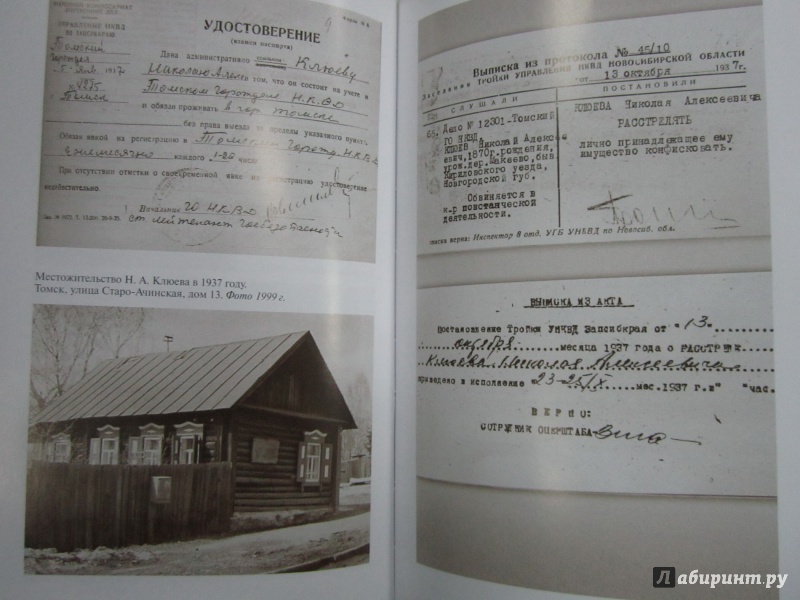 УПРАВЛЕНИЕ НКВД
УДОСТОВЕРЕНИЕ
(взамен паспорта)
Дана административно Клюеву
Николаю том, что он состоит на учете и
Томском Горотделе Н.К.В.Д
и обязан проживать в гор. Томске
без права выезда за пределы указанного пункта.
Обязан явкой на регистрацию в Томский Горотд. НКВД
Ежемесячно каждого числа
При отсутствии отметки о своевременной явке на регистрацию удостоверение
недействительно
Начальник ГО НКВД
ст. лейтенант госбезопасности
Местожительство Н. А. Клюева в 1937 году.
Томск, улица Старо-Ачинская, дом 13. Фото 1999 г.
Выписка из протокола № 45/10
Заседания ТРОЙКИ УПРАВЛЕНИЯ НКВД НОВОСИБИРСКОЙ ОБЛАСТИ
от 13 октября 1937г.
СЛУШАЛИ
ПОСТАНОВИЛИ
68. Дело № 12301-Томский
ГО НКВД
КЛЮЕВА Николай Алексе
евич, 1870г.рождения,
урож.дер.Макеево, быв.
Кирилловского уезда,
Новгородской Губ.
Обвиняется в
к-р повстанческой
деятельности.
КЛЮЕВА Николая Алексеевича
РАССТРЕЛЯТЬ
лично принадлежащее ему
имущество конфисковать.
Выписка верна: Инспектор 8 отд. УГБ УНКВД по Новосиб. обл.
ВЫПИСКА ИЗ АКТА
Постановление Тройки УНКВД Запсибкрая от "13"
октября месяца 1937 года о РАССТРЕЛЕ
Клюева Николая Алексеевича
приведено в исполнение "23-25/X мес.1937 г.в " "час.
ВЕРНО:
СОТРУДНИК ОПЕРШТАБА-
Лабиринт.ру